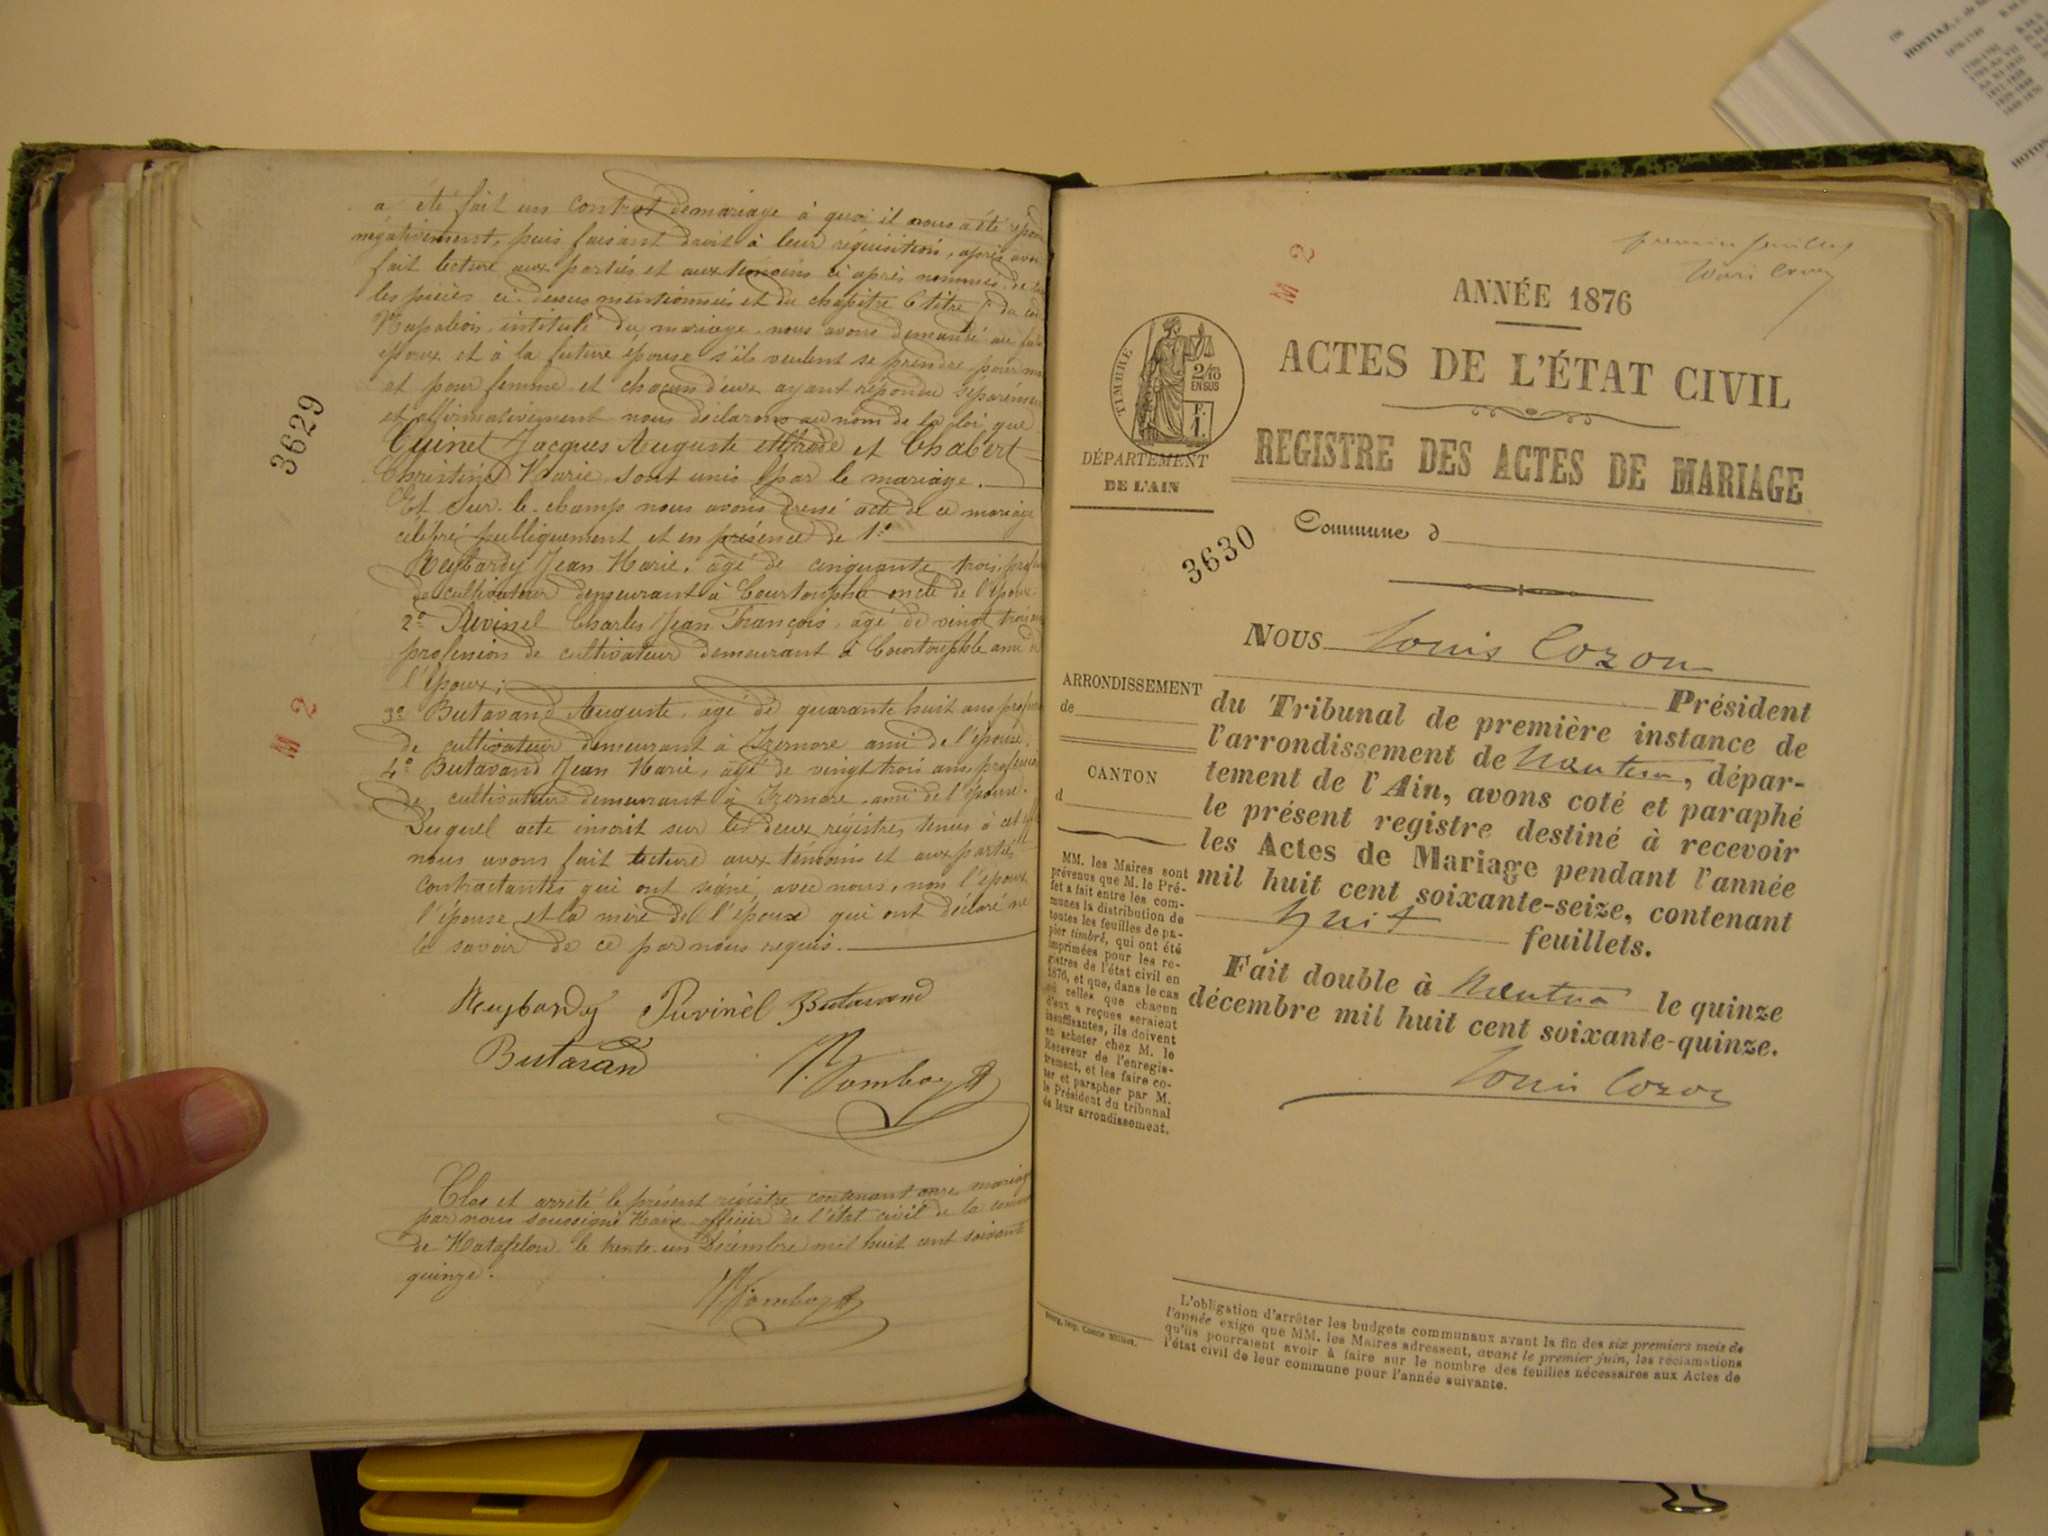 a été fait un contrat de mariage à quoi il nous a été
négativement, puis faisant droit à leur réquisition, après avoir
fait lecture aux parties et aux témoins ci après nommés, de
les pièces ci-dessus mentionnées et du chapitre 6 titre 5 du
Napoléon intitulé du mariage, nous avons demandé au
époux et à la future épouse s'ils veulent se prendre pour
et pour femme et chacun d'eux ayant répondu séparément
et affirmativement nous déclarons au nom de la loi que
Cuinet Jacques Auguste et Chabert
Christine Marie sont unis par le mariage.
Et sur-le-champ nous avons dressé acte de ce mariage
célébré publiquement et en présence de 1°
Neybardy Jean Marie, âgé de cinquante trois,
de cultivateur demeurant à Courtouphle oncle de l'époux
2° Puvinel Charles Jean François, âgé de vingt trois
profession de cultivateur demeurant à Courtouphle ami de
l'époux;
3° Butavand Auguste, âgé de quarante huit ans
de cultivateur demeurant à Izernore ami de l'épouse.
4° Butavand Jean Marie, âgé de vingt trois ans, profession
de cultivateur demeurant à Izernore, ami de l'épouse.
Duquel acte inscrit sur les deux régistres tenus à cet
nous avons fait lecture aux témoins et aux parties
contractantes qui ont signé, avec nous, non l'époux
l'épouse et la mère de l'époux qui ont déclaré ne
le savoir de ce par nous requis.
Neybardy Puvinèl Butavand
Butavand
Clos et arrêté le présent régistre contenant onze mariages
par nous soussigné Maire officier de l'état civil de la
de Matafelon le trente-un Décembre mil huit cent soixante
quinze.
3629
M 2
M 2
ANNÉE 1876
TIMBRE
2/10
EN SUS
F.
1.
ACTES DE L'ÉTAT CIVIL
REGISTRE DES ACTES DE MARIAGE
DÉPARTEMENT
DE L'AIN
3630
Commune d
NOUS Louis Cozon
Président
du Tribunal de première instance de
l'arrondissement de Nantua, dépar-
tement de l'Ain, avons coté et paraphé
le présent registre destiné à recevoir
les Actes de Mariage pendant l'année
mil huit cent soixante-seize, contenant
huit feuillets.
Fait double à Nantua le quinze
décembre mil huit cent soixante-quinze.
Louis Cozon
ARRONDISSEMENT
de
CANTON
d
MM. les Maires sont
prévenus que M. le Pré-
fet a fait entre les com-
munes la distribution de
toutes les feuilles de pa-
pier timbré, qui ont été
imprimées pour les re-
gistres de l'état civil en
1876, et que, dans le cas
où celles que chacun
d'eux a reçues seraient
insuffisantes, ils doivent
en acheter chez M. le
Receveur de l'enregis-
trement, et les faire co-
ter et parapher par M.
le Président du tribunal
de leur arrondissement.
Bourg, Imp. Comte Milliet.
L'obligation d'arrêter les budgets communaux avant la fin des six premiers mois de
l'année exige que MM. les Maires adressent, avant le premier juin, les réclamations
qu'ils pourraient avoir à faire sur le nombre des feuilles nécessaires aux Actes de
l'état civil de leur commune pour l'année suivante.